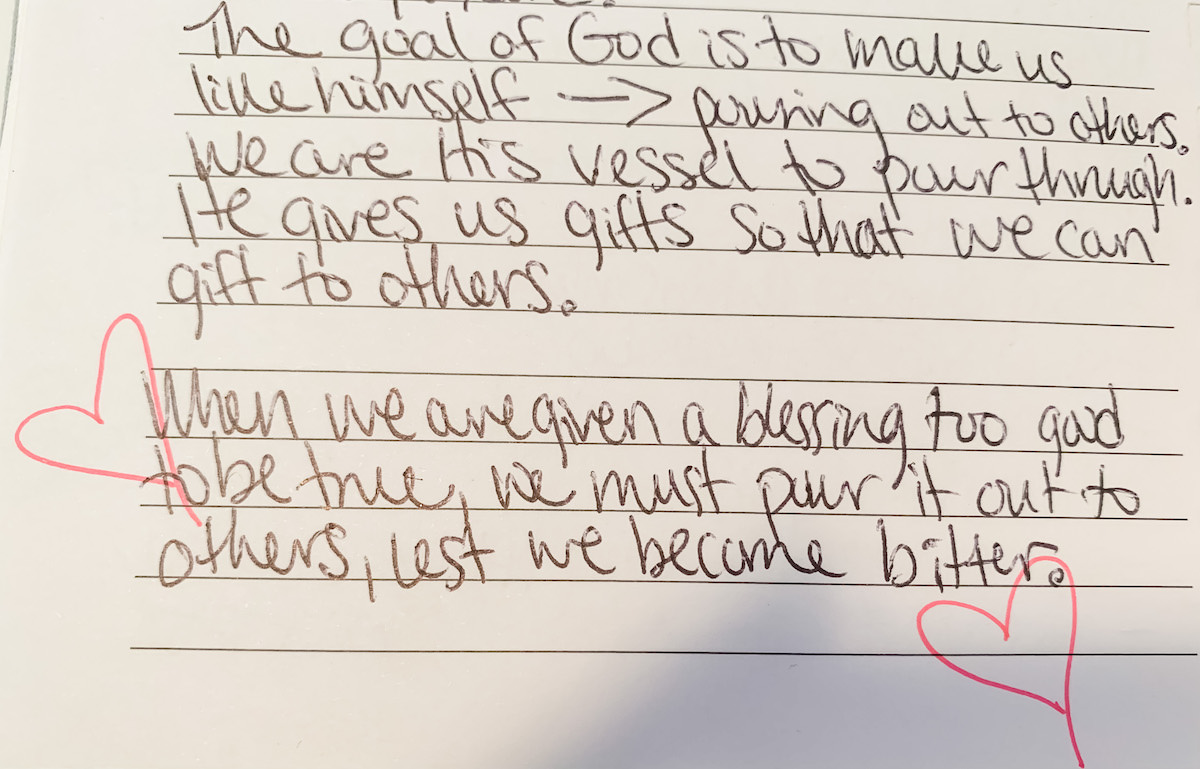 The goal of God is to make us
like himself → pouring out to others.
We are His vessel to pour through.
He gives us gifts so that we can
gift to others.
When we are given a blessing too good
to be true, we must pour it out to
others, lest we become bitter.